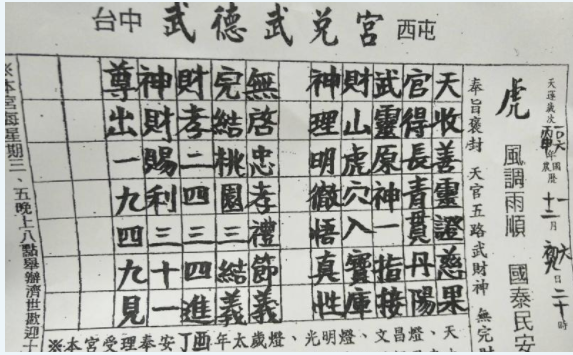 台中 武德武兌宮 西屯
天運歲次丙申年農曆十二月初六日二十時
虎 風調雨順 國泰民安
奉旨褒封 天官五路武財神 無完財
天收善靈證慈果
官得長青貫丹陽
武靈原神一指接
財山虎穴入寶庫
神理明徹悟真性
無啓忠孝禮節義
完結桃園三結義
財孝二四三四進
神財賜利三十一
尊出一九四九見
※本宮每星期三、五晚上八點舉辦濟世歡迎十
※本宮受理奉安丁酉年太歲燈、光明燈、文昌燈、天